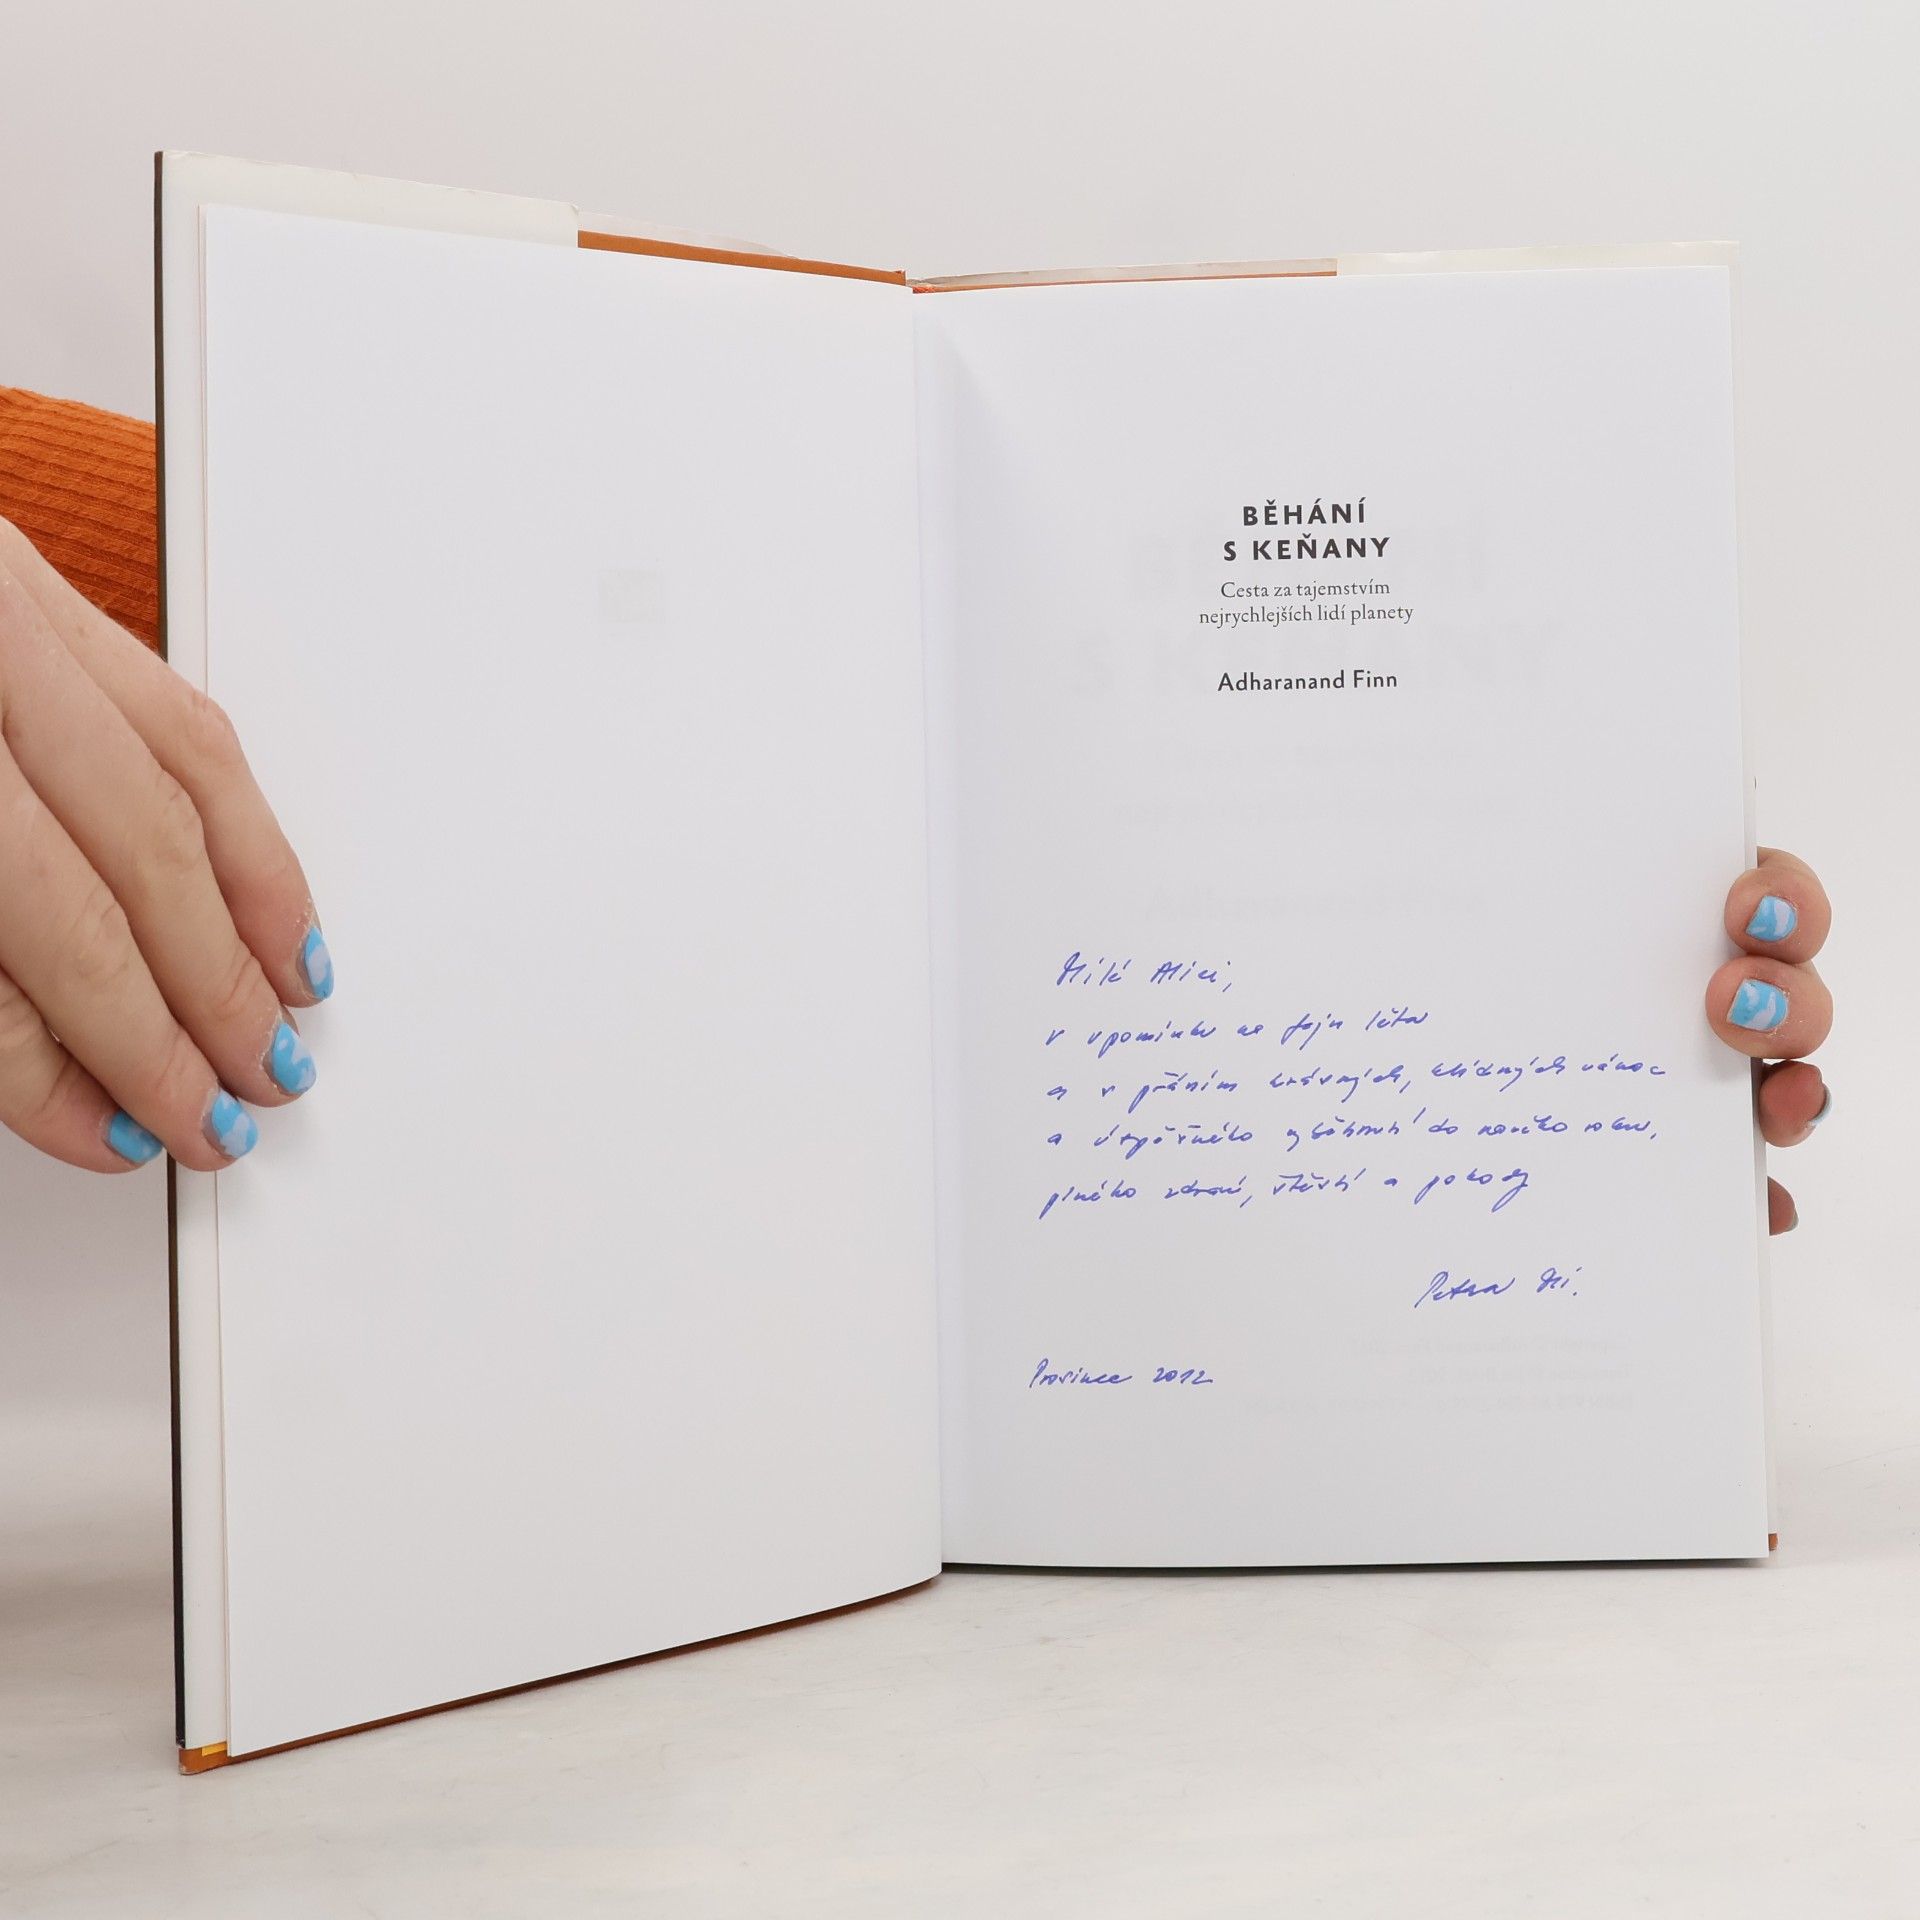 BĚHÁNÍ
S KEŇANY
Cesta za tajemstvím
nejrychlejších lidí planety
Adharanand Finn
Milé Alici,
v upomínku na fajn léta
a s přáním krásných, klidných vánoc
a úspěšného vyběhnutí do nového roku,
plného zdraví, štěstí a pohody
Petra
Prosinec 2012